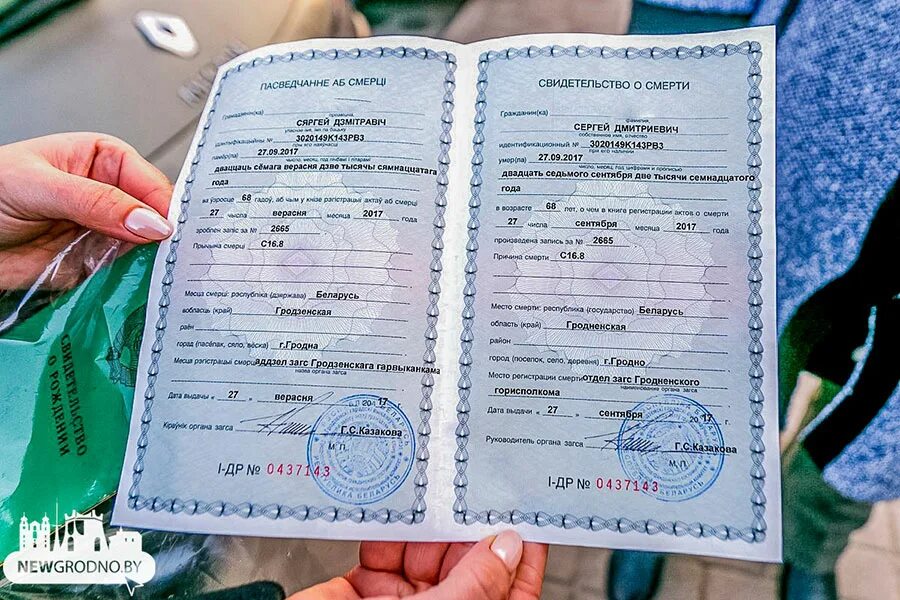 ПАСВЕДЧАННЕ АБ СМЕРЦІ
Грамадзянін(ка)
прозвішча
СЯРГЕЙ ДЗМІТРАВІЧ
уласнае імя, імя па бацьку
ідэнтыфікацыйны № 3020149К143РВ3
пры яго наяўнасці
памёр(ла) 27.09.2017
число, месяц, год лічбамі і літарамі
дваццаць сёмага верасня дзве тысячы сямнаццатага
года
ва ўзросце 68 гадоў, аб чым у кнізе рэгістрацыі актаў аб смерці
27 числа верасня месяца 2017 года
зроблен запіс за № 2665
Прычына смерці С16.8
Месца смерці: рэспубліка (дзяржава) Беларусь
вобласць (край) Гродзенская
раён
горад (пасёлак, сяло, вёска) г.Гродна
Месца рэгістрацыі смерці аддзел загс Гродзенскага гарвыканкама
назва органа загса
Дата выдачы « 27 » верасня 2017
Кіраўнік органа загса Г.С.Казакова
М.П.
І-ДР № 0437143
СВИДЕТЕЛЬСТВО О СМЕРТИ
Гражданин(ка)
фамилия
СЕРГЕЙ ДМИТРИЕВИЧ
собственное имя, отчество
идентификационный № 3020149К143РВ3
при его наличии
умер(ла) 27.09.2017
число, месяц, год цифрами и прописью
двадцать седьмого сентября две тысячи семнадцатого
года
в возрасте 68 лет, о чем в книге регистрации актов о смерти
27 числа сентября месяца 2017 года
произведена запись за № 2665
Причина смерти С16.8
Место смерти: республика (государство) Беларусь
область (край) Гродненская
район
город (поселок, село, деревня) г.Гродно
Место регистрации смерти отдел загс Гродненского
наименование органа загса
горисполкома
Дата выдачи « 27 » сентября 2017 г.
Руководитель органа загса Г.С.Казакова
М.П.
І-ДР № 0437143
СВИДЕТЕЛЬСТВО
О РОЖДЕНИИ
NEWGRODNO.BY